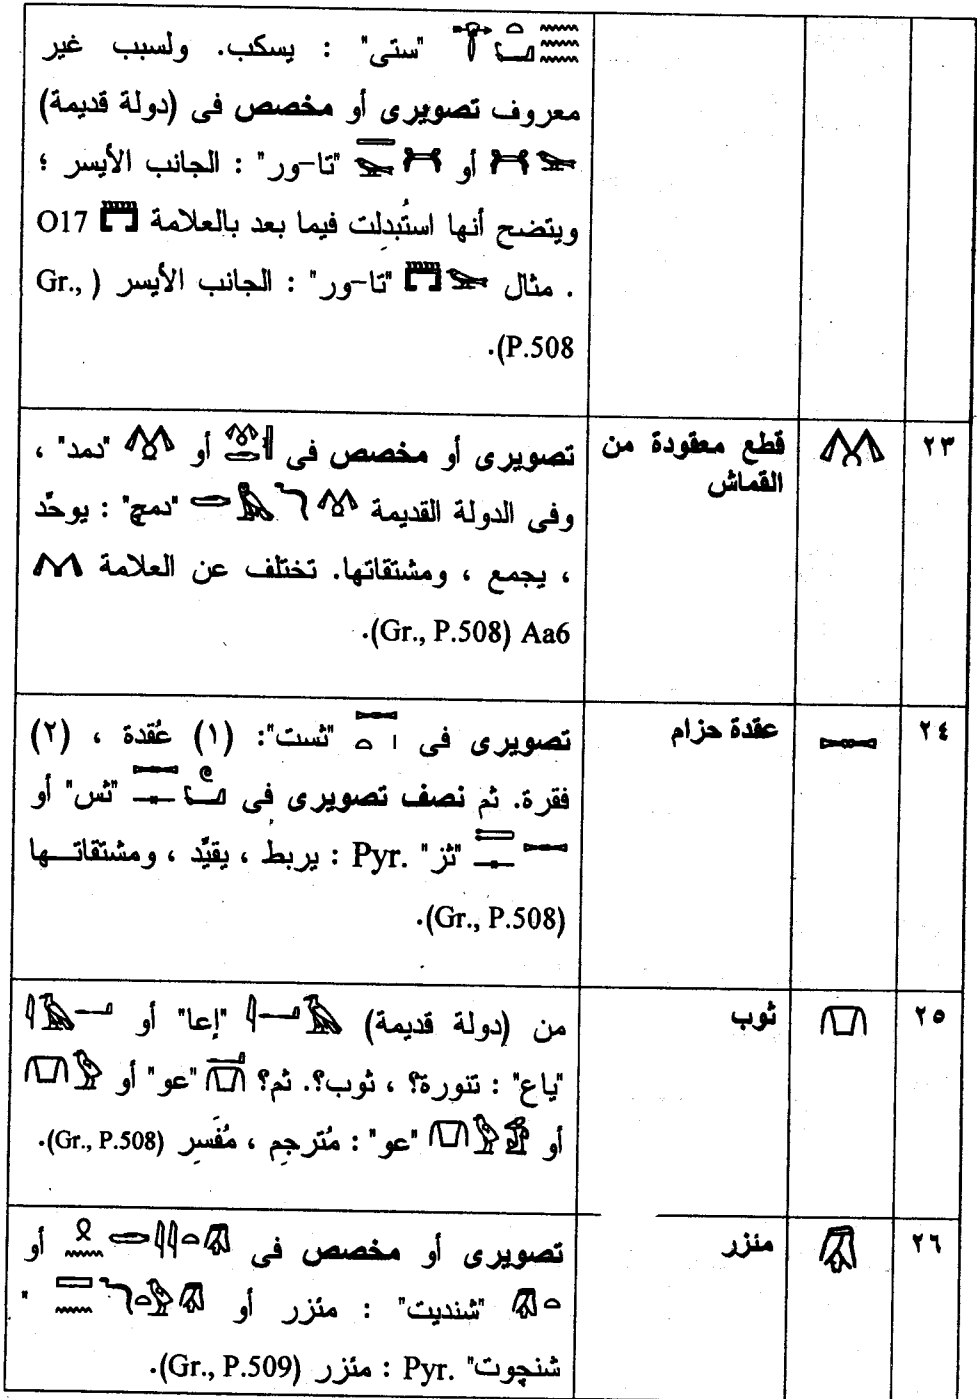 "ستى" : يسكب. ولسبب غير
معروف تصويرى أو مخصص فى (دولة قديمة)
أو "تا-ور" : الجانب الأيسر ؛
ويتضح أنها استُبدِلت فيما بعد بالعلامة O17
. مثال "تا-ور" : الجانب الأيسر (Gr.,
P.508).
٢٣
قطع معقودة من
القماش
تصويرى أو مخصص فى أو "دمد" ،
وفى الدولة القديمة "دمچ" : يوحّد
، يجمع ، ومشتقاتها. تختلف عن العلامة
Aa6 (Gr., P.508).
٢٤
عقدة حزام
تصويرى فى "ثست": (١) عُقدة ، (٢)
فقرة. ثم نصف تصويرى فى "ثس" أو
"ثز" Pyr. : يربط ، يقيِّد ، ومشتقاتها
(Gr., P.508).
٢٥
ثوب
من (دولة قديمة) "إعا" أو
"ياع" : تنورة؟ ، ثوب؟. ثم؟ "عو" أو
أو "عو" : مُترجِم ، مُفَسِر (Gr., P.508).
٢٦
مئزر
تصويرى أو مخصص فى أو
"شنديت" : مئزر أو "
شنچوت" Pyr. : مئزر (Gr., P.509).